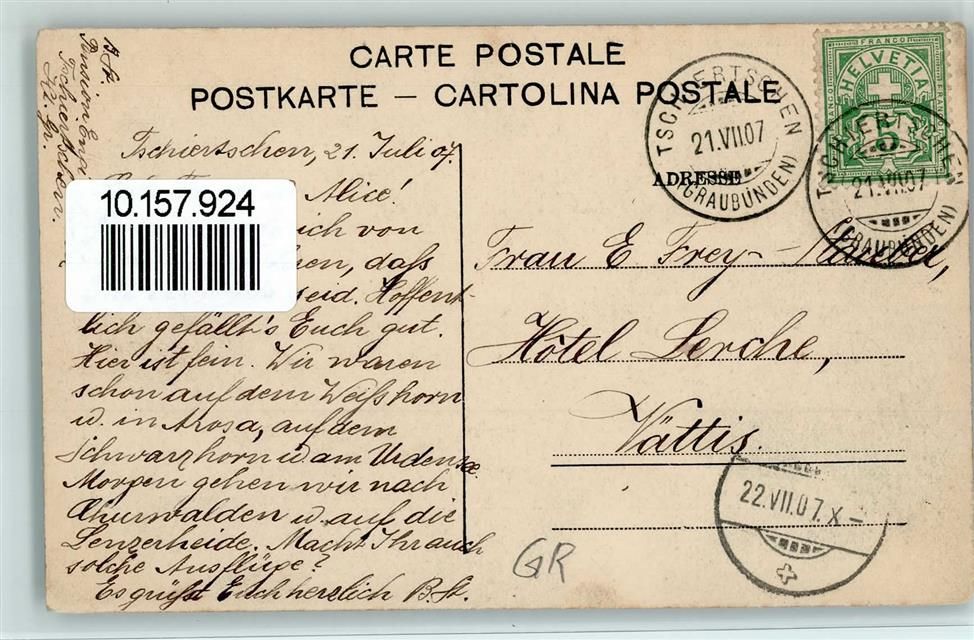 CARTE POSTALE
POSTKARTE — CARTOLINA POSTALE
ADRESSE
FRANCO
HELVETIA
5
TSCHIERTSCHEN
21.VII.07
(GRAUBÜNDEN)
TSCHIERTSCHEN
21.VII.07
(GRAUBÜNDEN)
B. St.
Tschiertschen.
Kt. Gr.
Tschiertschen, 21. Juli 07.
Alice!
ich von
en, daß
seid. Hoffent-
lich gefällt's Euch gut.
Hier ist fein. Wir waren
schon auf dem Weißhorn
u. in Arosa, auf dem
Schwarzhorn u am Urdensee
Morgen gehen wir nach
Churwalden u auf die
Lenzerheide. Macht Ihr auch
solche Ausflüge?
Es grüßt Euch herzlich B. St.
10.157.924
Frau E Frey-
Hôtel Lerche,
Vättis.
22.VII.07. X–
GR